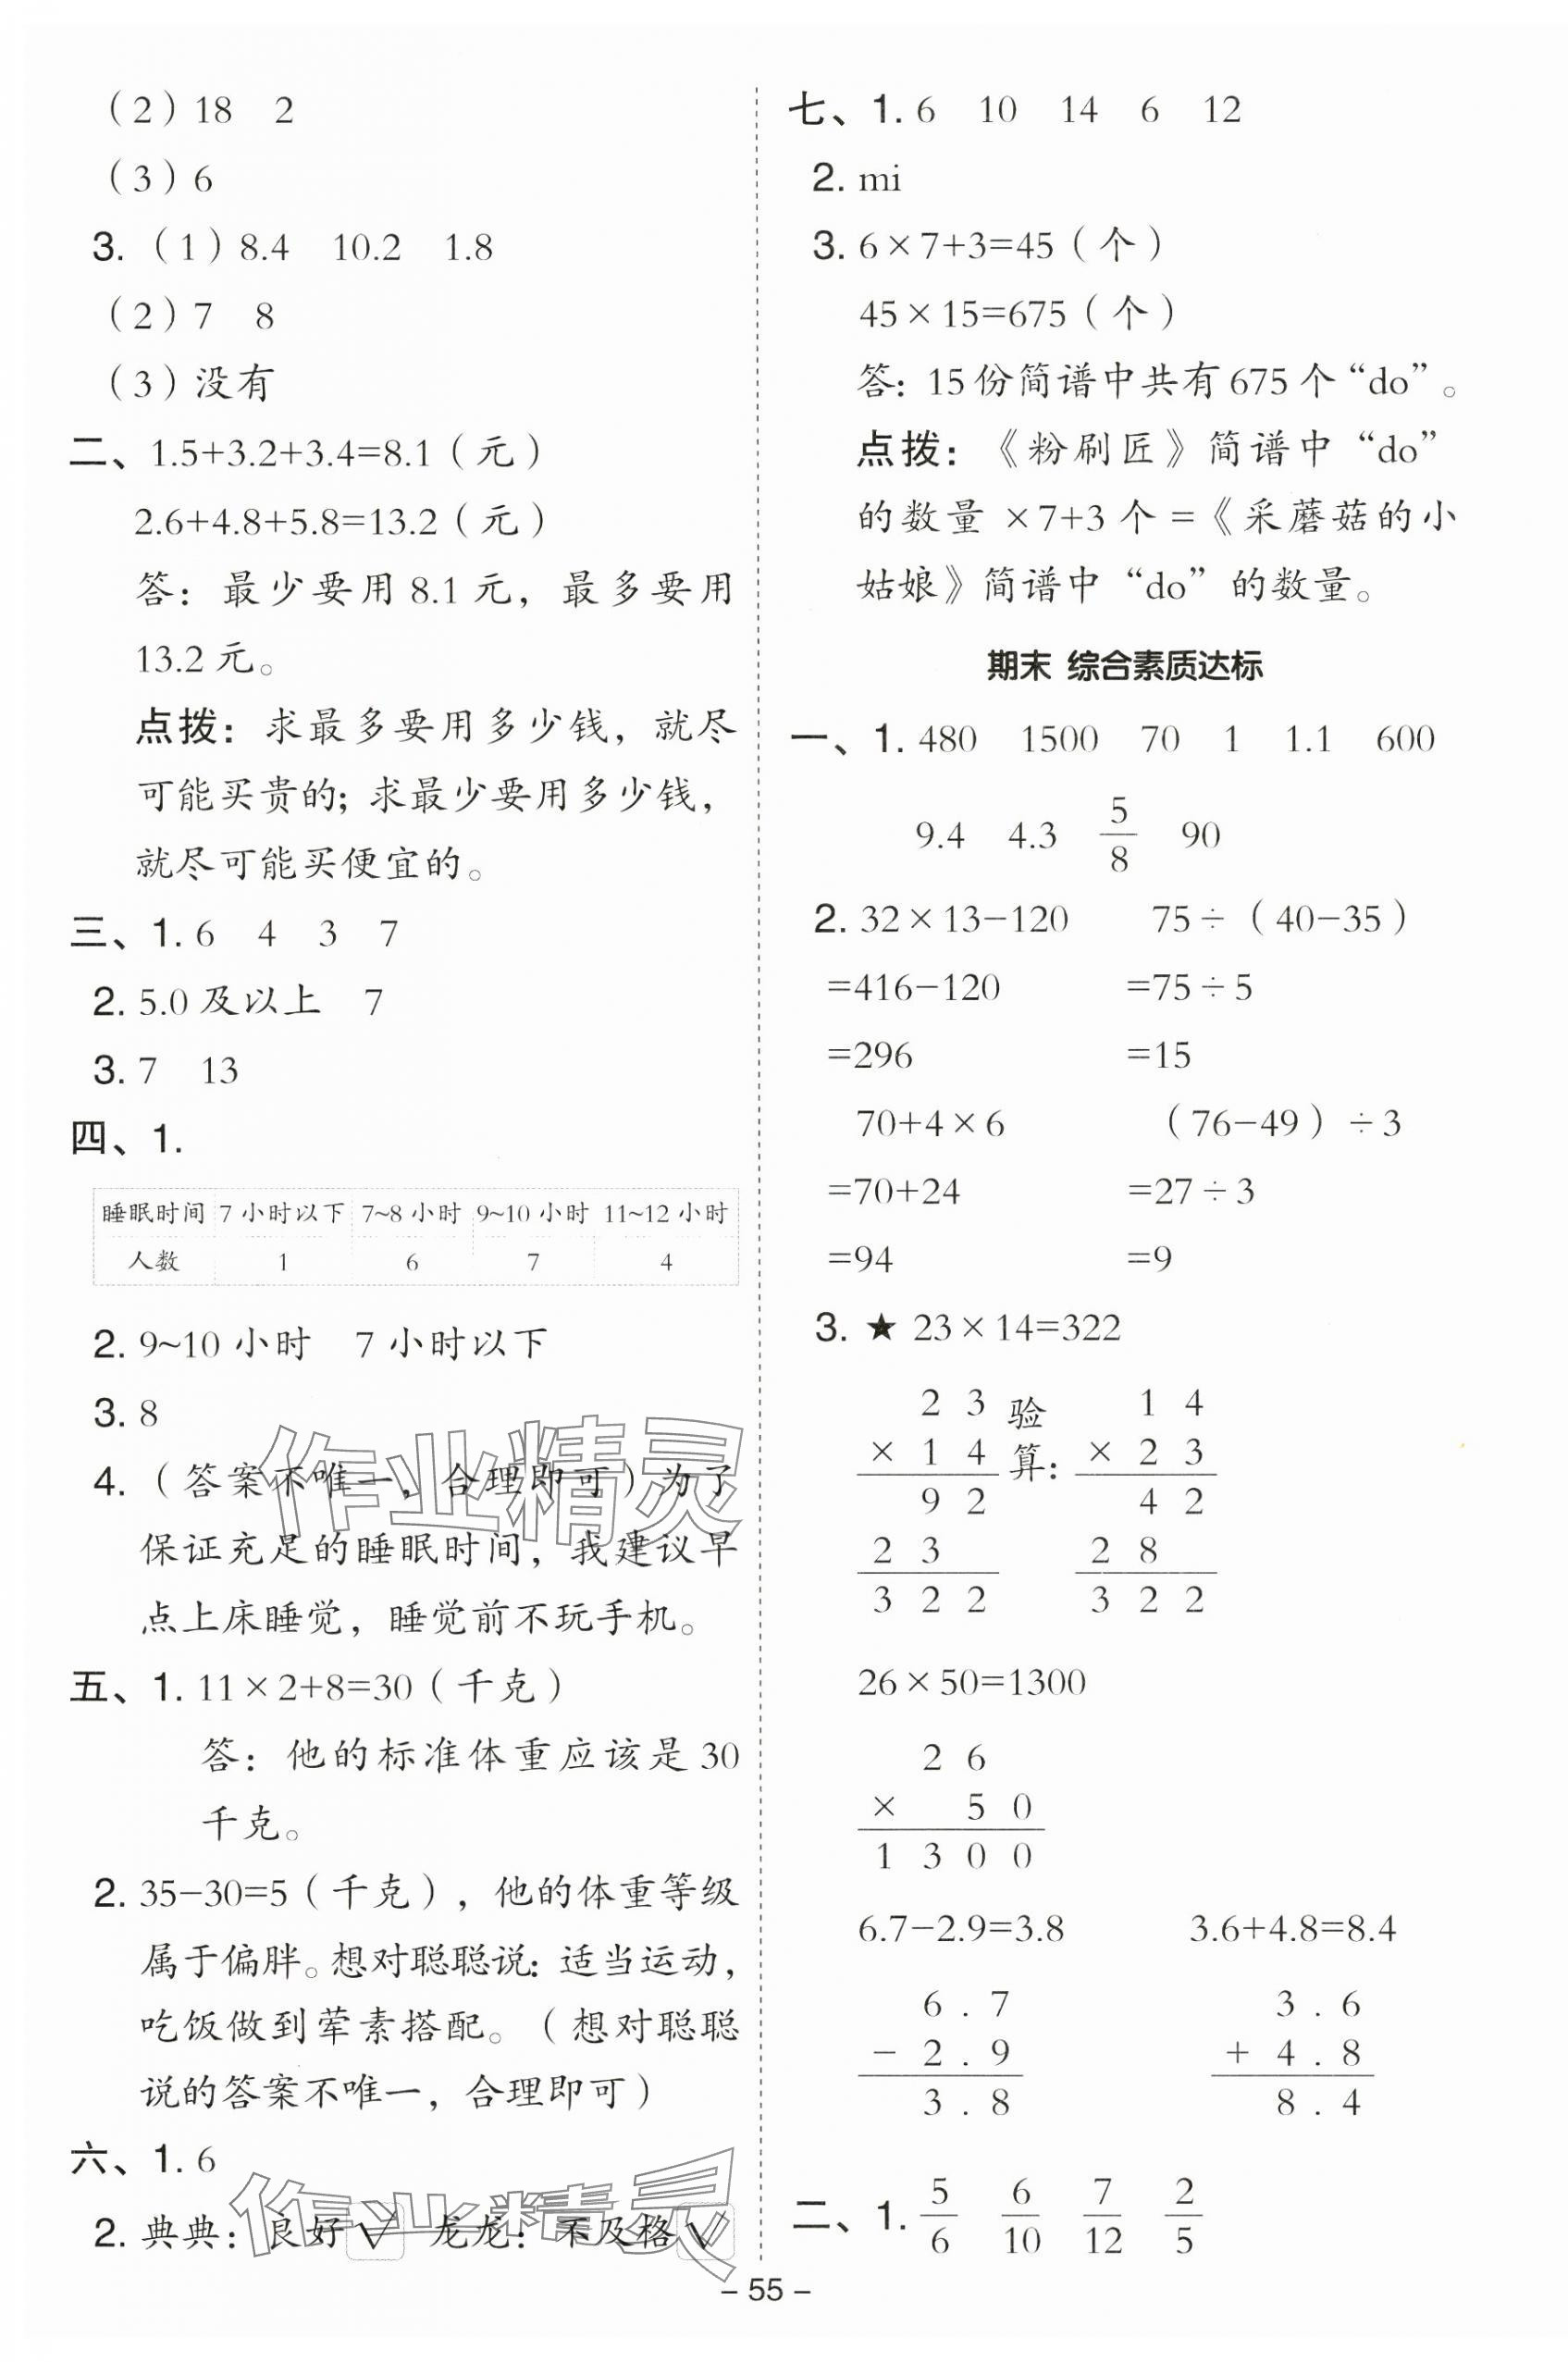 (2)18 2
(3)6
3.(1)8.4 10.2 1.8
(2)7 8
(3)没有
二、1.5+3.2+3.4=8.1(元)
2.6+4.8+5.8=13.2(元)
答:最少要用8.1元,最多要用
13.2元。
点拨:求最多要用多少钱,就尽
可能买贵的;求最少要用多少钱,
就尽可能买便宜的。
三、1.6 4 3 7
2.5.0及以上 7
3.7 13
四、1.
睡眠时间 7小时以下 7~8小时 9~10小时 11~12小时
人数 1 6 7 4
2.9~10小时 7小时以下
3.8
4.(答案不唯一,合理即可)为了
保证充足的睡眠时间,我建议早
点上床睡觉,睡觉前不玩手机。
五、1.11×2+8=30(千克)
答:他的标准体重应该是30
千克。
2.35-30=5(千克),他的体重等级
属于偏胖。想对聪聪说:适当运动,
吃饭做到荤素搭配。(想对聪聪
说的答案不唯一,合理即可)
六、1.6
2.典典:良好√ 龙龙:不及格√
作业精灵
作业精灵
七、1.6 10 14 6 12
2.mi
3.6×7+3=45(个)
45×15=675(个)
答:15份简谱中共有675个“do”。
点拨:《粉刷匠》简谱中“do”
的数量×7+3个=《采蘑菇的小
姑娘》简谱中“do”的数量。
期末 综合素质达标
一、1.480 1500 70 1 1.1 600
9.4 4.3 5/8 90
2.32×13-120 75÷(40-35)
=416-120 =75÷5
=296 =15
70+4×6 (76-49)÷3
=70+24 =27÷3
=94 =9
3.★23×14=322
2 3 验 1 4
×1 4 算: ×2 3
9 2 4 2
2 3 2 8
3 2 2 3 2 2
26×50=1300
2 6
× 5 0
1 3 0 0
6.7-2.9=3.8 3.6+4.8=8.4
6.7 3.6
-2.9 +4.8
3.8 8.4
二、1.5/6 6/10 7/12 2/5
-55-